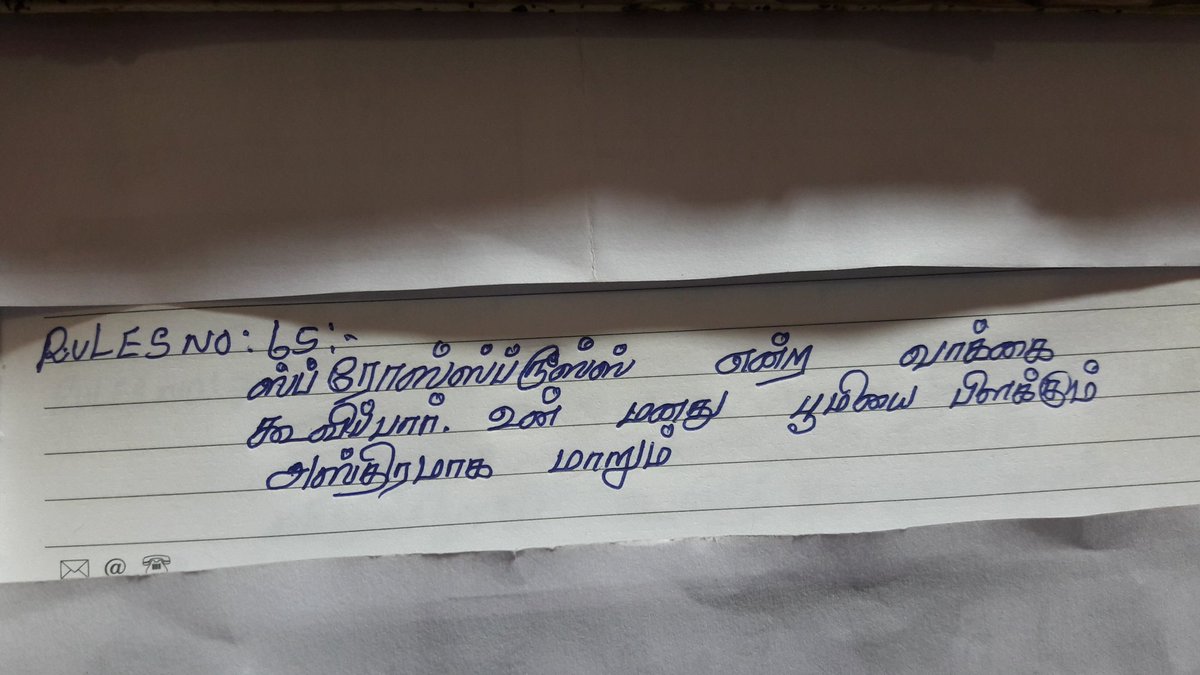 RULES NO: 65:-
ஸ்ப்ரோஸ்ஸ்ப்ரூஸ்ஸ் என்ற வாக்கை
கூவிப்பார். உன் மனது பூமியை பிளக்கும்
அஸ்திரமாக மாறும்
@